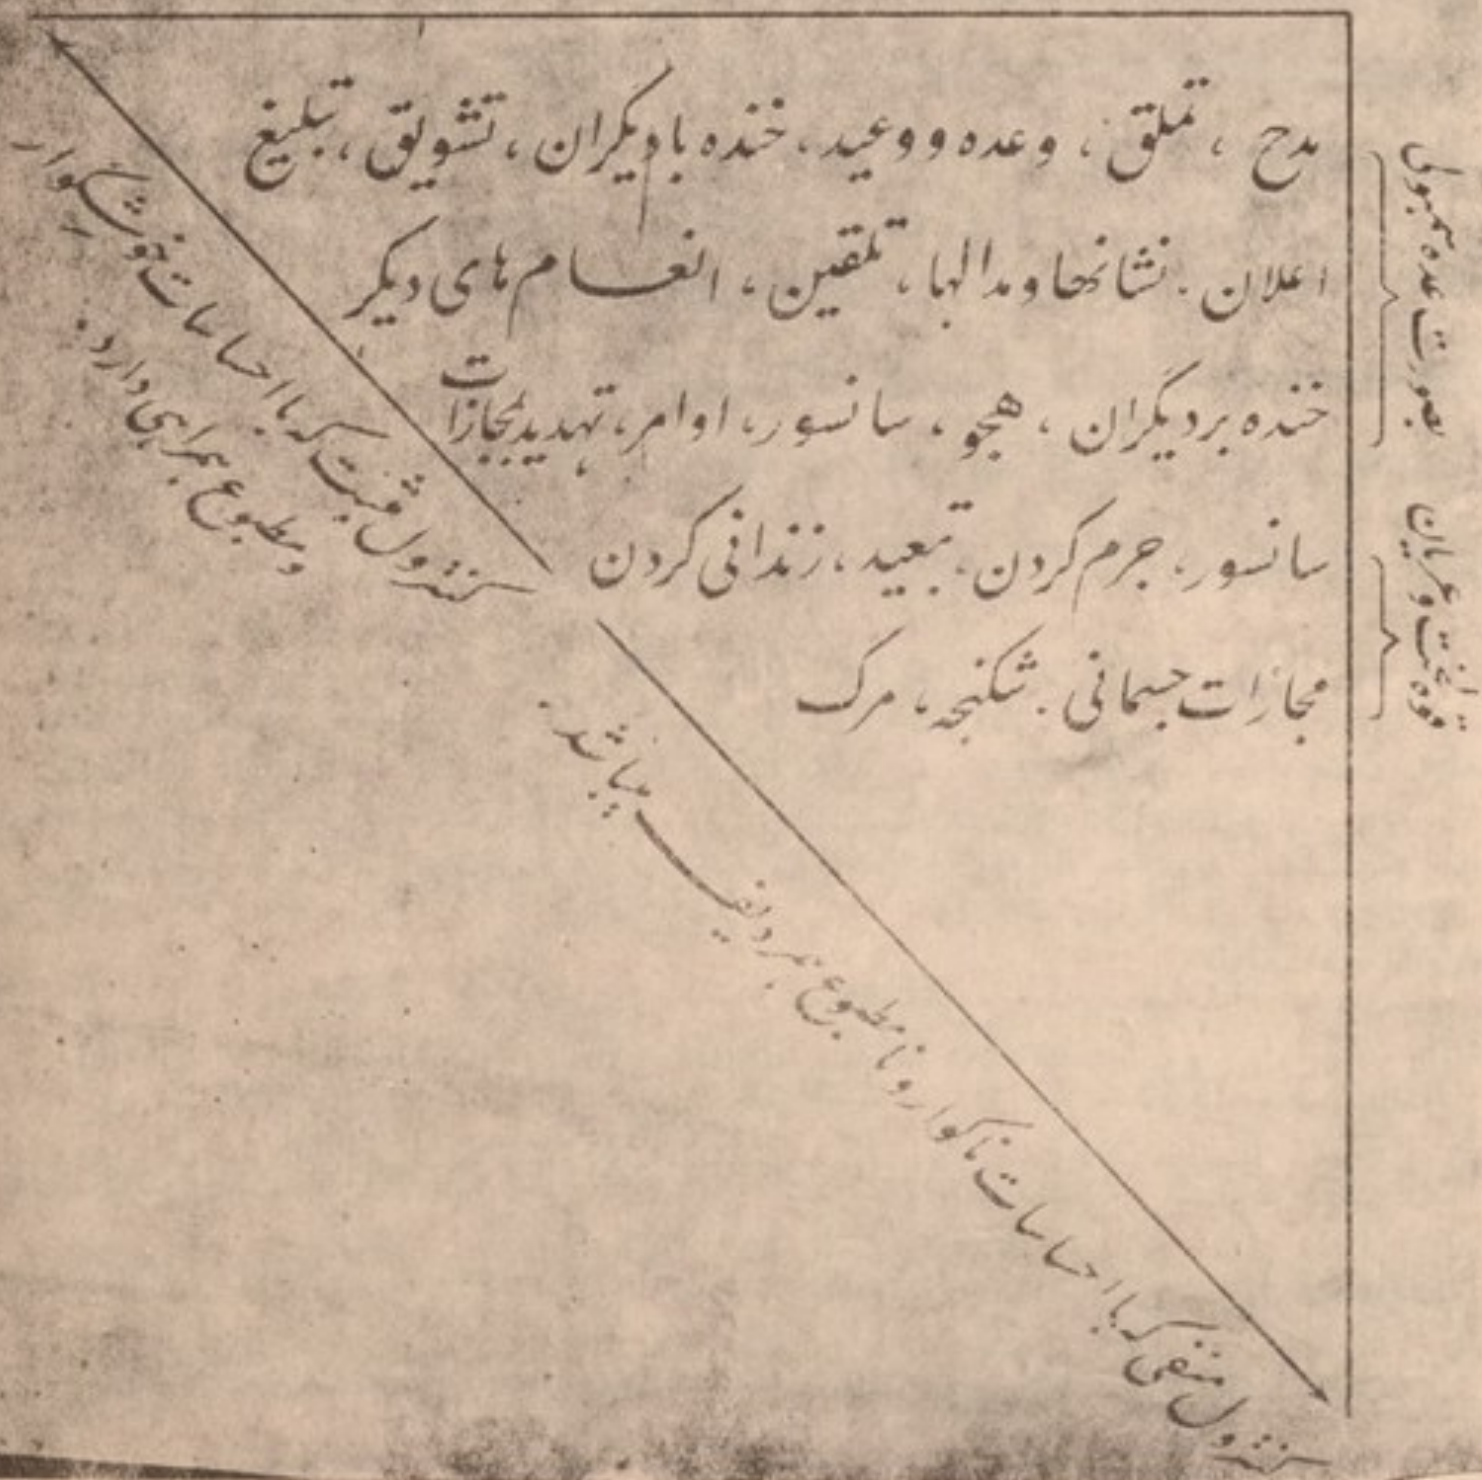 مدح ، تملق ، وعده ووعید ، خنده با دیگران ، تشویق ، تبلیغ
اعلان . نشانها و مدالها ، تلقین ، انعام های دیگر
خنده بر دیگران ، هجو ، سانسور ، اوامر ، تهدید بمجازات
سانسور ، جرم کردن ، تبعید ، زندانی کردن
مجازات جسمانی . شکنجه ، مرگ
بصورت عده سمبولی
قوه لخت و عریان
کنترول مثبت که با احساسات خوشگوار
و مطبوع همراهی دارد .
کنترول منفی که با احساسات ناگوار و نامطبوع همردیف میباشد .